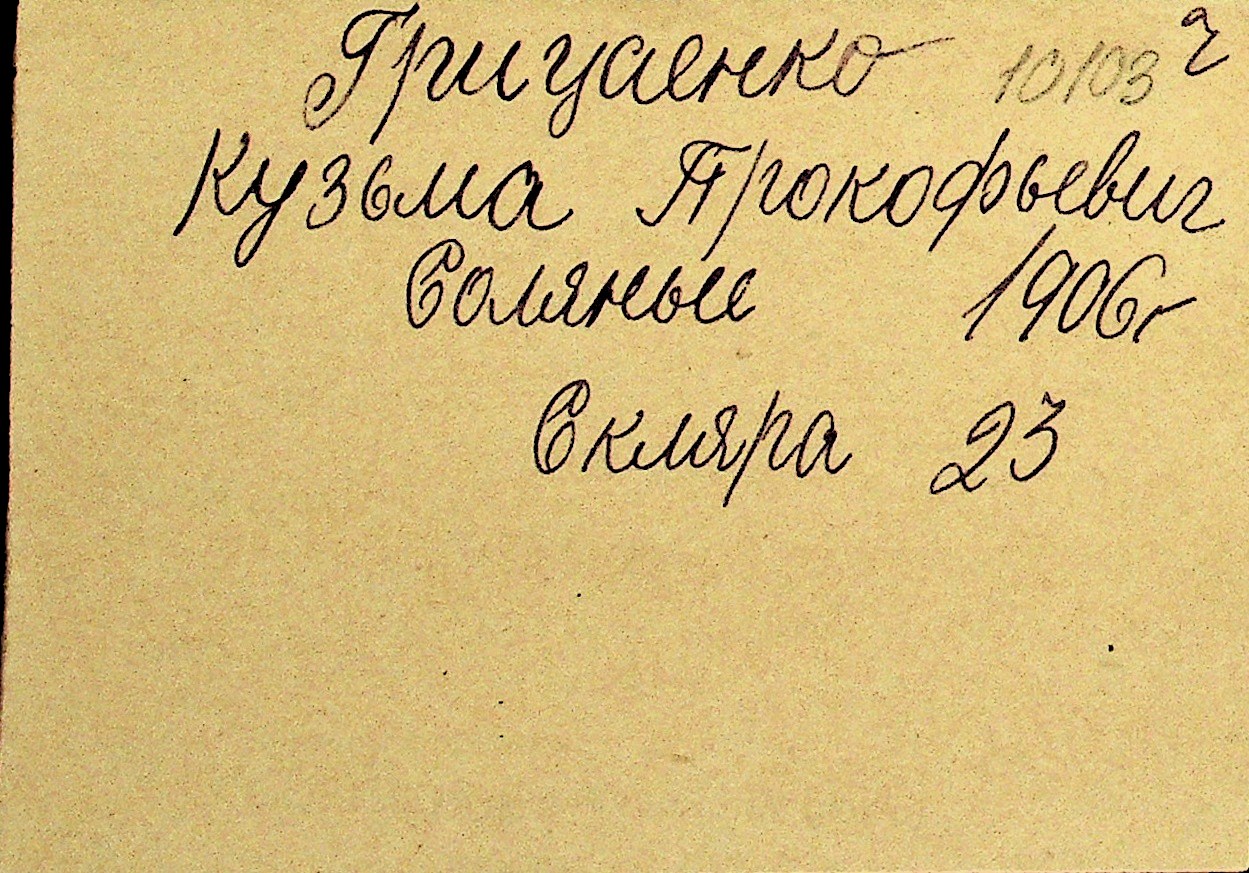 Грицаенко 10103 ч
Кузьма Прокофьевич
Соляные 1906г
Скляра 23